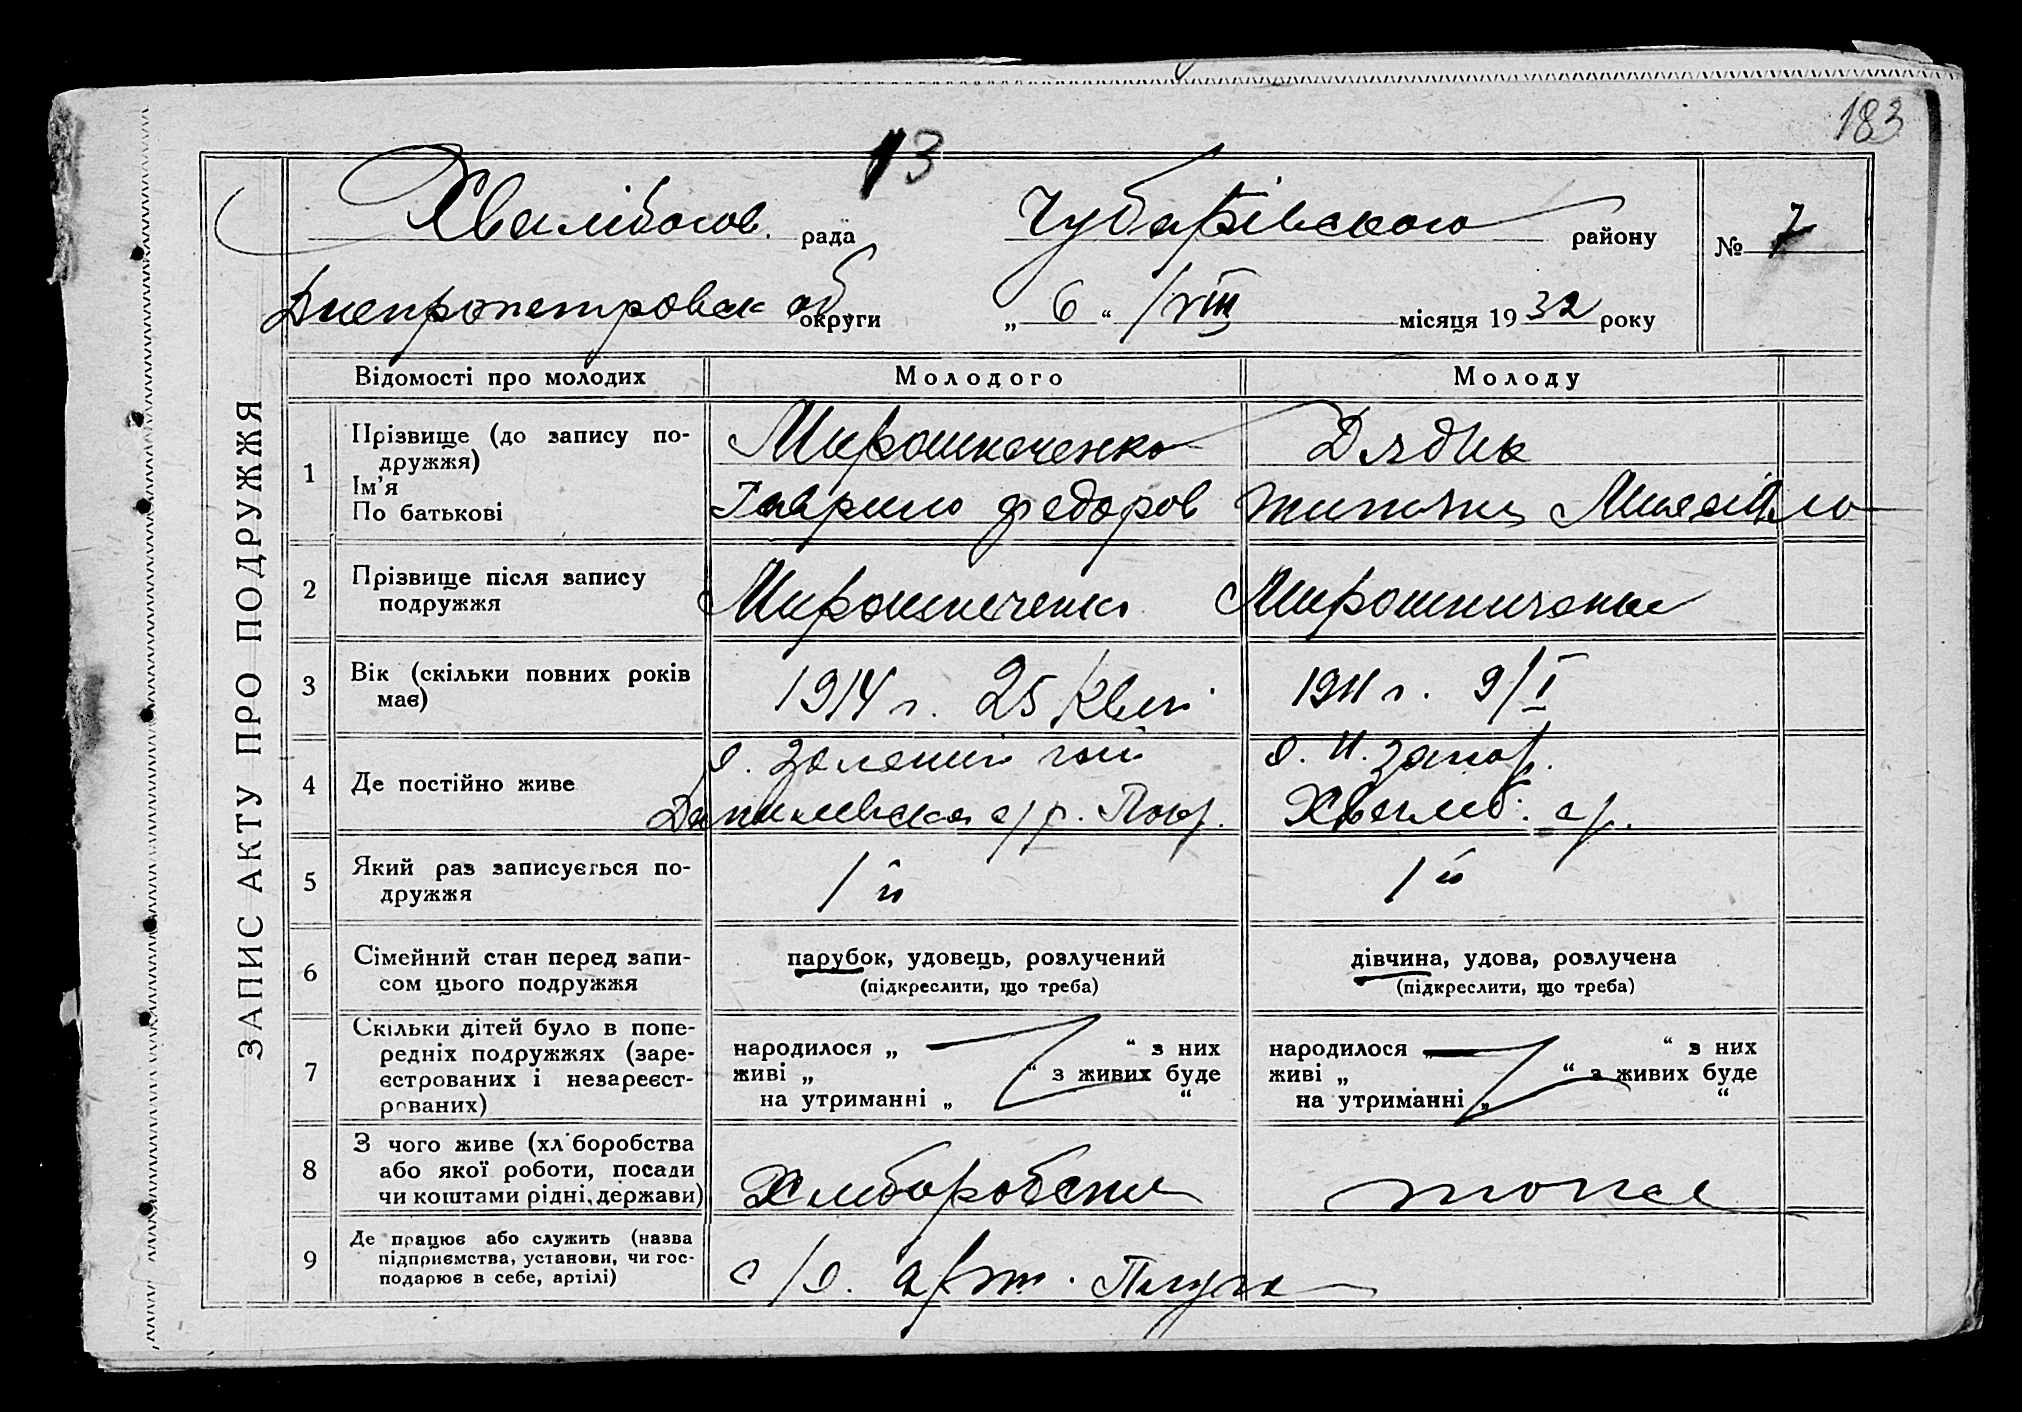 183
13
Хвалібогов. рада Чубарівського району № 7
Днепропетровск об. округи „ 6 “ /VIII місяця 1932 року
ЗАПИС АКТУ ПРО ПОДРУЖЖЯ
Відомості про молодих Молодого Молоду
1 Прізвище (до запису по-
дружжя)
Ім'я
По батькові
Мирошниченко
Гаврило Федоров
Дядик
Михайло
2 Прізвище після запису
подружжя
Мирошниченко Мирошниченко
3 Вік (скільки повних років
має)
1914 г. 25
1911 г. 9/I
4 Де постійно живе
с. Зелений гай
с/р.
с. Н. Запор.
Хвалиб. с/р.
5 Який раз записується по-
дружжя
1й 1й
6 Сімейний стан перед запи-
сом цього подружжя
парубок, удовець, розлучений
(підкреслити, що треба)
дівчина, удова, розлучена
(підкреслити, що треба)
7 Скільки дітей було в попе-
редніх подружжях (заре-
єстрованих і незареєст-
рованих)
народилося „ “ з них
живі „ “ з живих буде
на утриманні „ “
народилося „ “ з них
живі „ “ з живих буде
на утриманні „ “
8 З чого живе (хліборобства
або якої роботи, посади
чи коштами рідні, держави)
Хлеборобство тоже
9 Де працює або служить (назва
підприємства, установи, чи гос-
подарює в себе, артілі)
с/г. арт.